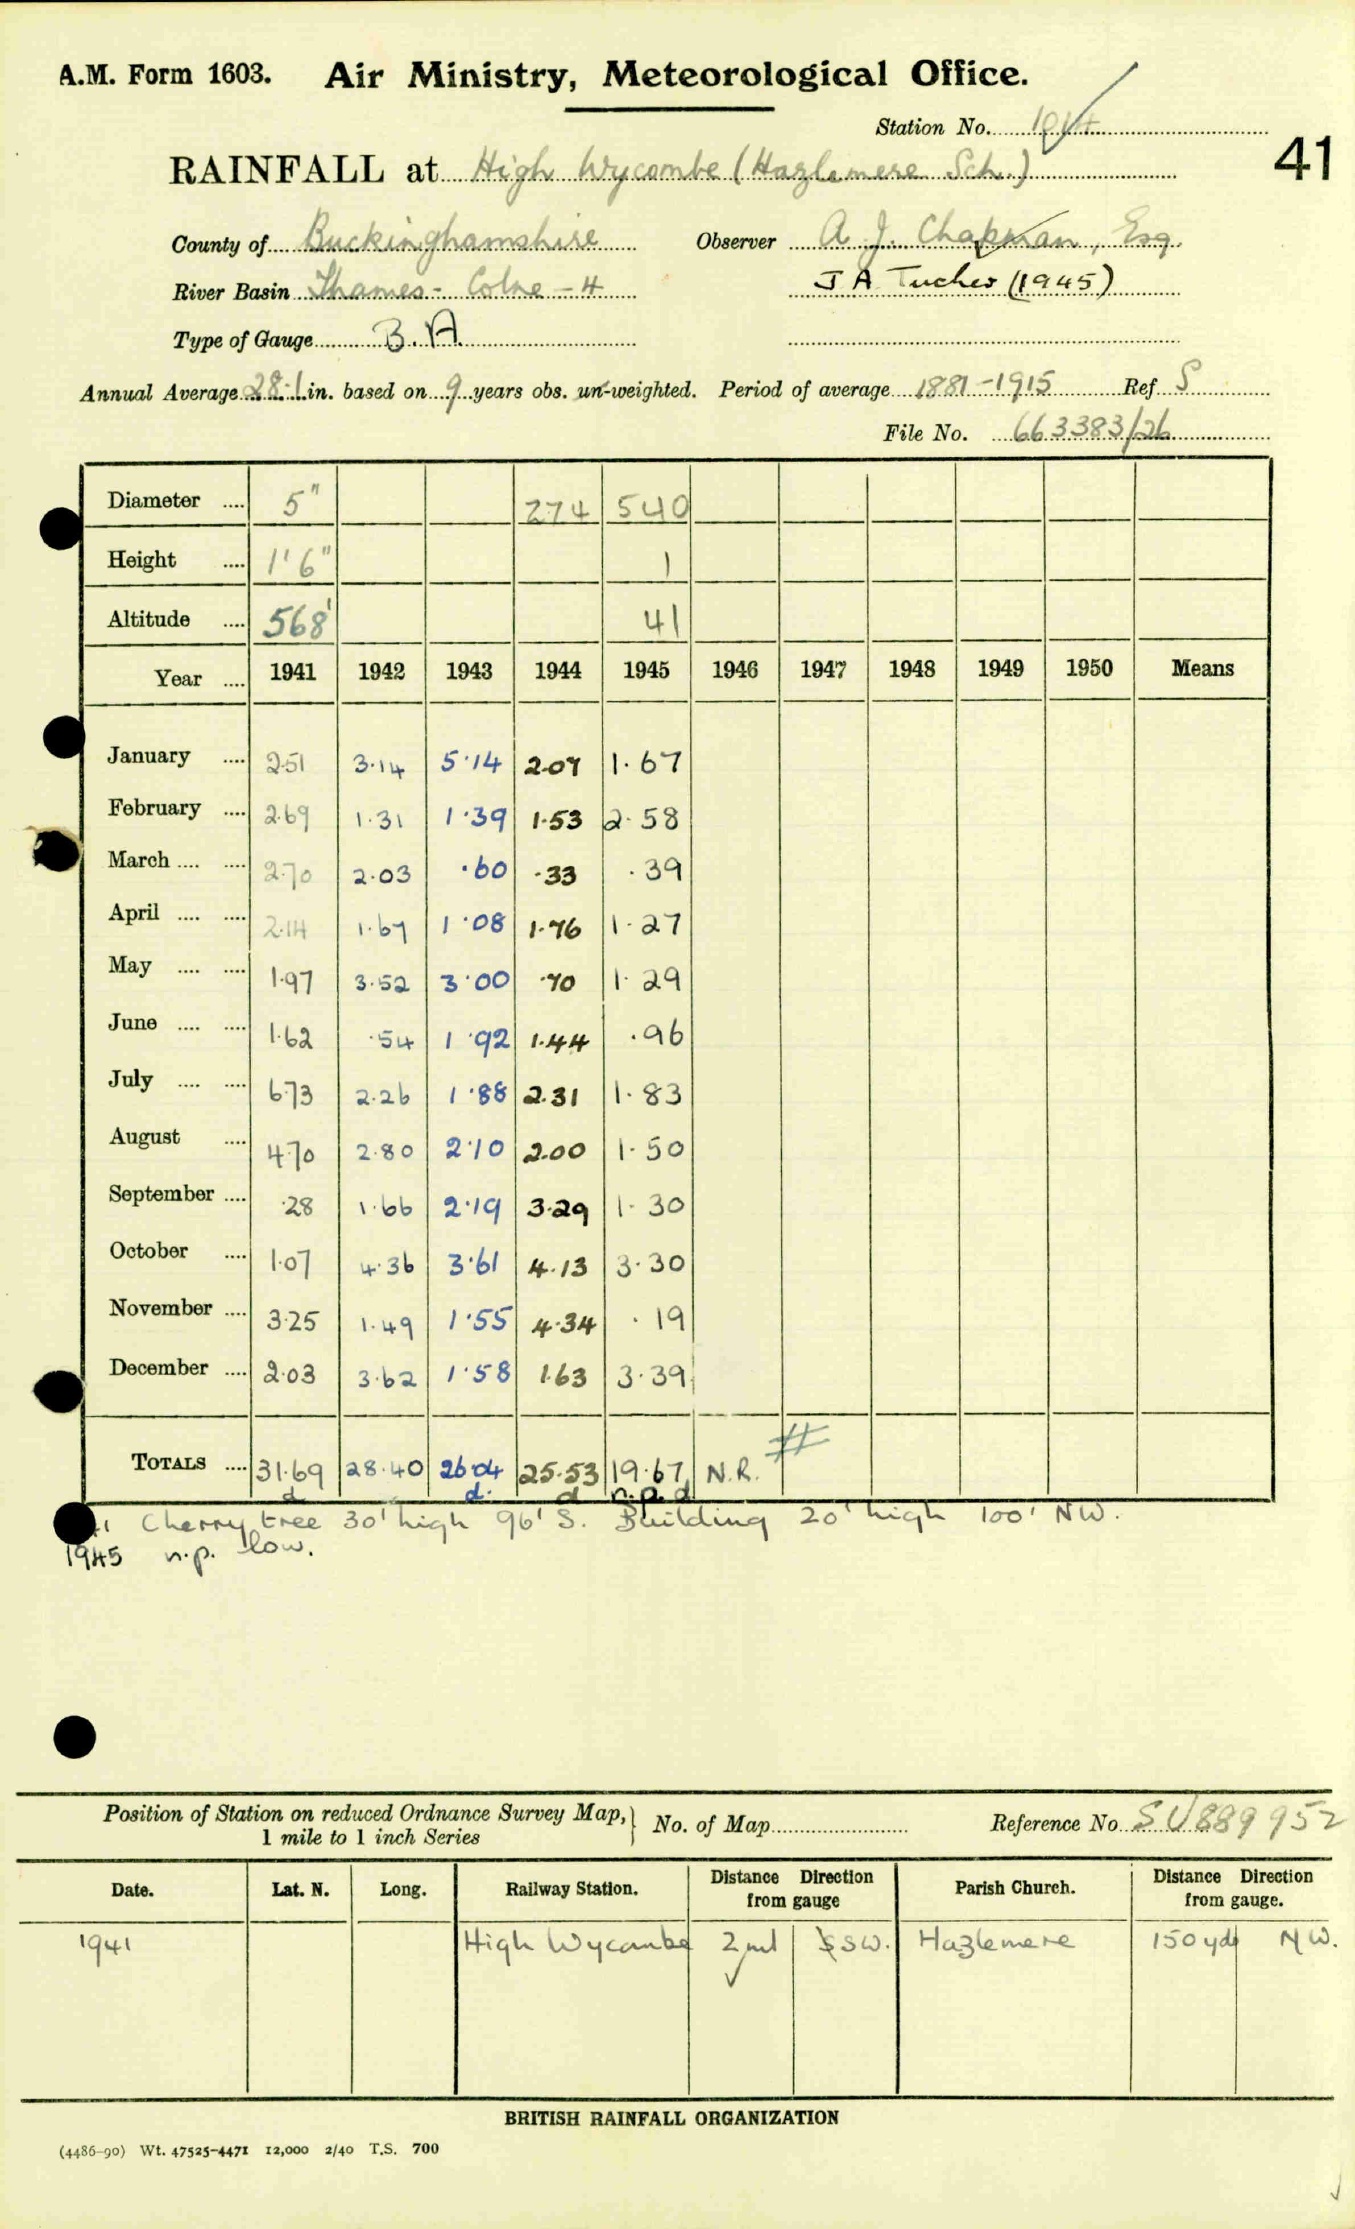 A.M. Form 1603. Air Ministry, Meteorological Office.
Station No. 1014
41
RAINFALL at High Wycombe (Hazlemere Sch.)
County of Buckinghamshire Observer A. J. Chapman, Esq.
River Basin Thames - Colne - 4 J A Tucker (1945)
Type of Gauge B.A.
Annual Average 28.1 in. based on 9 years obs. un-weighted. Period of average 1881-1915 Ref S
File No. 663383/26
Diameter .... 5" 274 540
Height .... 1'6" 1
Altitude .... 568' 41
Year .... 1941 1942 1943 1944 1945 1946 1947 1948 1949 1950 Means
January .... 2.51 3.14 5.14 2.07 1.67
February .... 2.69 1.31 1.39 1.53 2.58
March .... .... 2.70 2.03 .60 .33 .39
April .... .... 2.14 1.67 1.08 1.76 1.27
May .... .... 1.97 3.52 3.00 .70 1.29
June .... .... 1.62 .54 1.92 1.44 .96
July .... .... 6.73 2.26 1.88 2.31 1.83
August .... 4.70 2.80 2.10 2.00 1.50
September .... .28 1.66 2.19 3.29 1.30
October .... 1.07 4.36 3.61 4.13 3.30
November .... 3.25 1.49 1.55 4.34 .19
December .... 2.03 3.62 1.58 1.63 3.39
TOTALS .... 31.69 28.40 26.04 25.53 19.67 N.R. #
d d. d n.p. d
41 Cherry tree 30' high 96' S. Building 20' high 100' NW.
1945 n.p. low.
Position of Station on reduced Ordnance Survey Map, } No. of Map Reference No SU 889 952
1 mile to 1 inch Series
Date. Lat. N. Long. Railway Station. Distance Direction from gauge Parish Church. Distance Direction from gauge.
1941 High Wycombe 2 ml SSW. Hazlemere 150 yds NW.
BRITISH RAINFALL ORGANIZATION
(4486-90) Wt. 47525-4471 12,000 2/40 T.S. 700